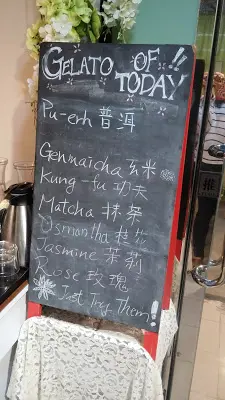 GELATO OF !!
TODAY
Pu-erh 普洱
Genmaicha 玄米
Kung-fu 功夫
Matcha 抹茶
Osmantha 桂花
Jasmine 茉莉
Rose 玫瑰
Just Try Them!
推